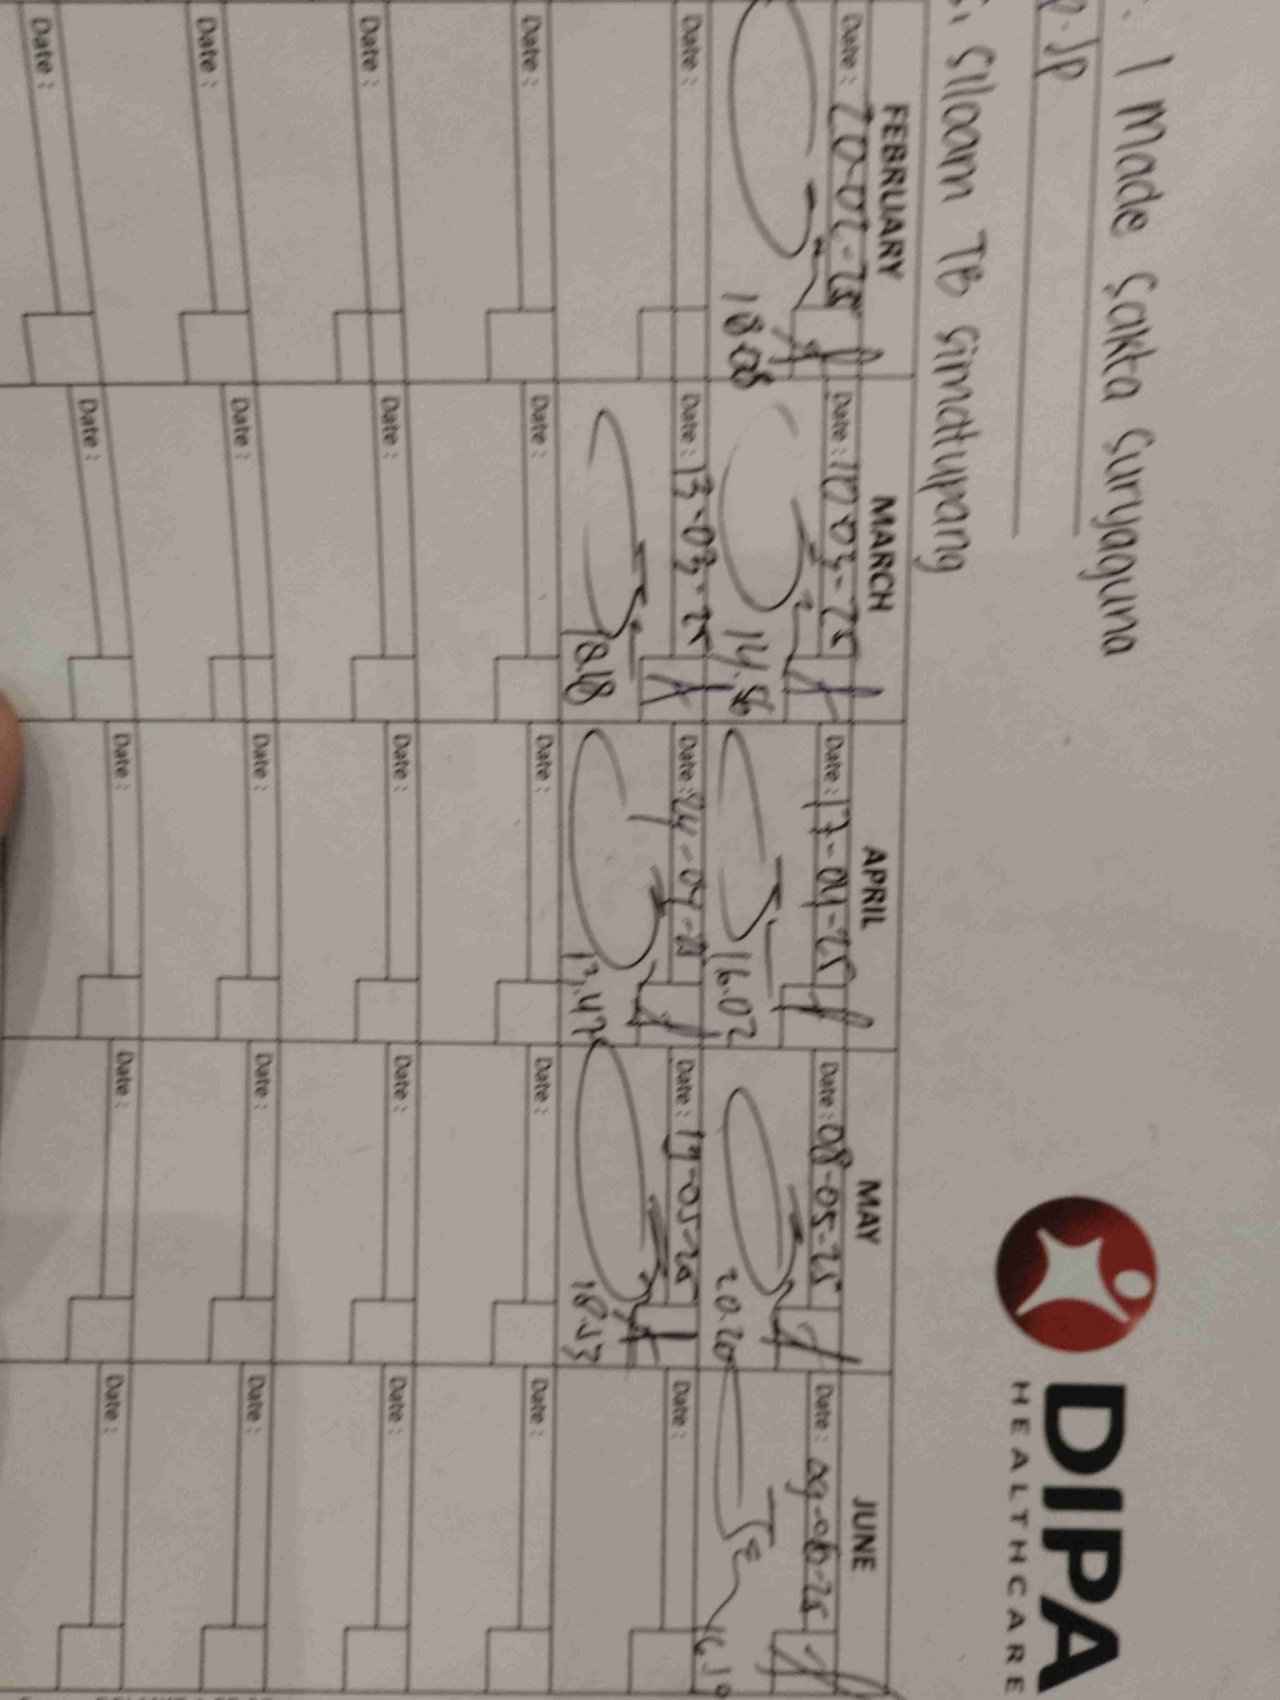 I Made Sakta Suryaguna
DIPA
HEALTHCARE
Siloam TB Simatupang
FEBRUARY MARCH APRIL MAY JUNE
Date: 20-02-25 Date: 10-03-25 Date: 17-04-25 Date: 08-05-25 Date: 09-06-25
18.08 14.56 16.02 20.20
Date: Date: 13-03-25 Date: 24-04-25 Date: 19-05-25 Date:
18.18 13.47 18.53
Date: Date: Date: Date: Date:
Date: Date: Date: Date: Date:
Date: Date: Date: Date: Date:
Date: Date: Date: Date: Date: